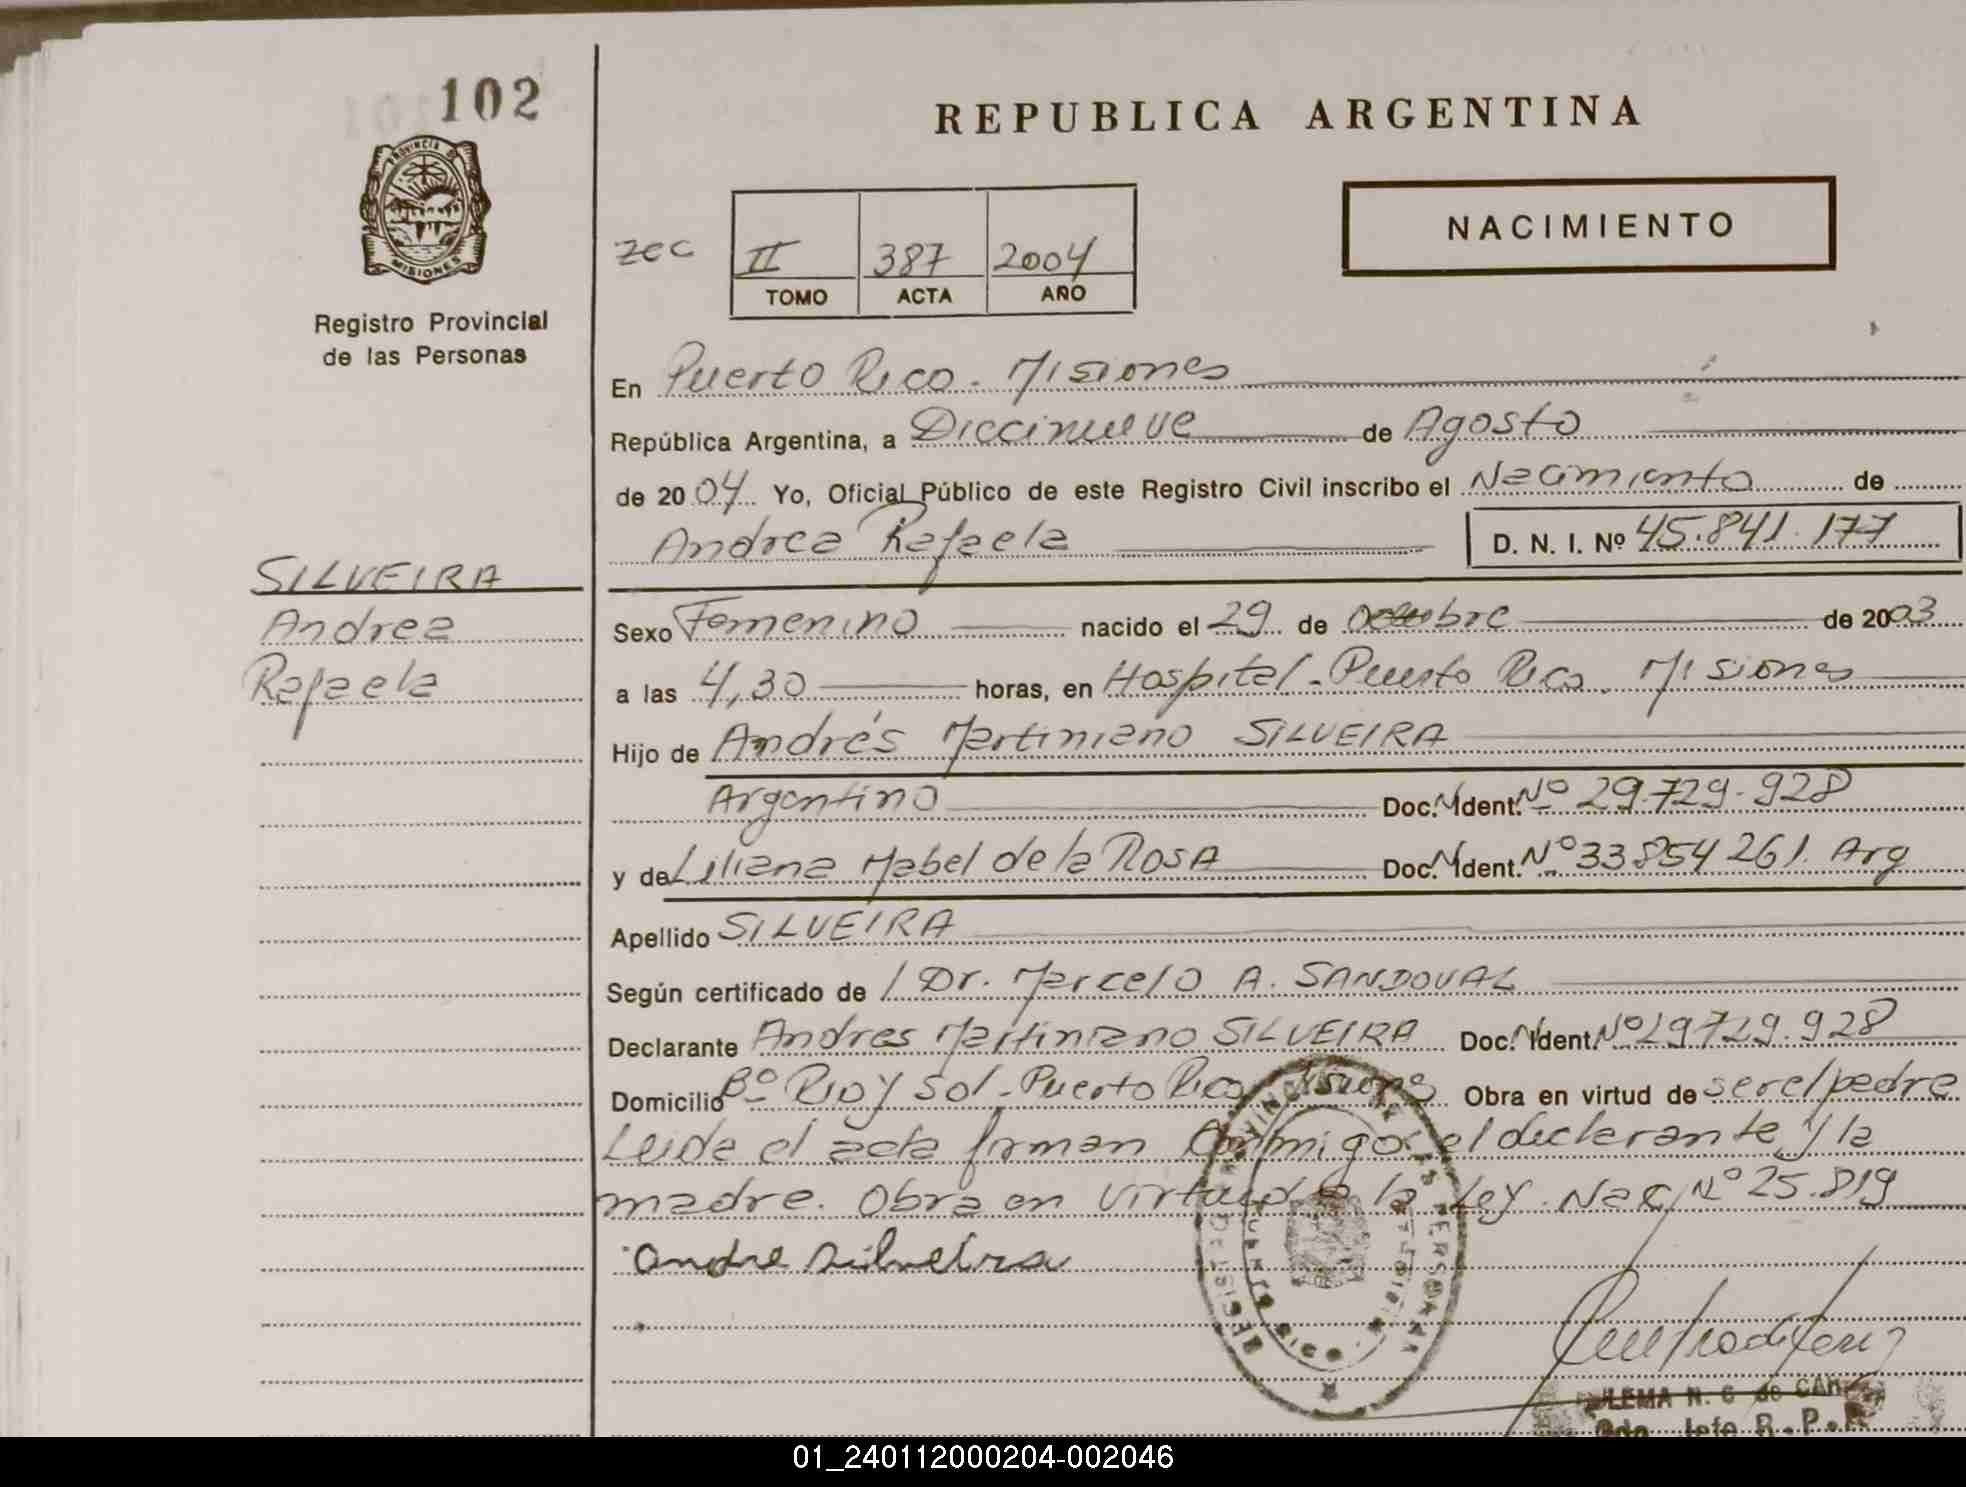 102
REPUBLICA ARGENTINA
PROVINCIA DE
MISIONES
Registro Provincial
de las Personas
NACIMIENTO
zec
II 387 2004
TOMO ACTA AÑO
En Puerto Rico. Misiones
República Argentina, a Diecinueve de Agosto
de 2004 Yo, Oficial Público de este Registro Civil inscribo el Nacimiento de
Andrea Rafaela D. N. I. Nº 45.841.177
SILVEIRA
Andrea
Rafaela
Sexo Femenino nacido el 29 de Octubre de 2003
a las 4,30 horas, en Hospital - Puerto Rico. Misiones
Hijo de Andrés Martiniano SILVEIRA
Argentino Doc. Ident. Nº 29.729.928
y de Liliana Mabel de la ROSA Doc. Ident. Nº 33854261. Arg
Apellido SILVEIRA
Según certificado de / Dr. Marcelo A. SANDOVAL
Declarante Andres Martiniano SILVEIRA Doc. Ident. Nº 29729.928
Domicilio Bº Rio y Sol - Puerto Rico Misiones Obra en virtud de ser el padre
Leida el acta firman conmigo el declarante y la
madre. Obra en virtud de la Ley. Nac. Nº 25.819
andre silveira
LEMA N. G de
Jefe R. P.
01_240112000204-002046